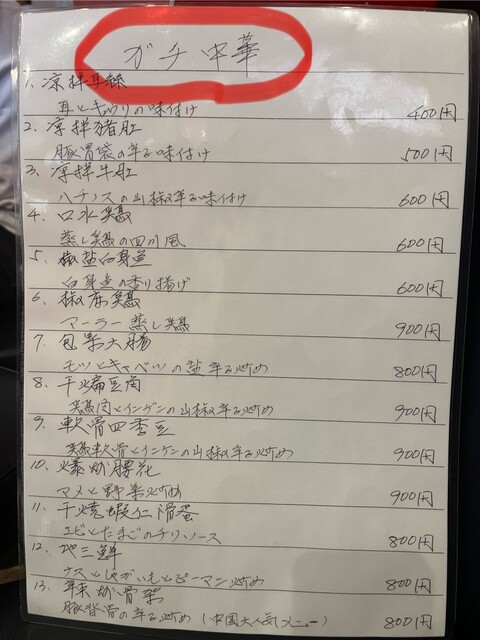 ガチ中華
1. 凉拌耳絲
耳とキュウリの味付け 400円
2. 凉拌猪肚
豚胃袋の辛る味付け 500円
3. 凉拌牛肚
ハチノスの山椒辛る味付け 600円
4. 口水鶏
蒸し鶏の四川風 600円
5. 椒盐白身鱼
白身魚の香り揚げ 600円
6. 椒麻鶏
マーラー蒸し鶏 900円
7. 包菜大腸
モツとキャベツの塩辛る炒め 800円
8. 干煸豆角
鶏肉とインゲンの山椒辛る炒め 900円
9. 軟骨四季豆
鶏軟骨とインゲンの山椒辛る炒め 900円
10. 爆炒腰花
マメと野菜炒め 900円
11. 干焼蝦仁滑蛋
エビとたまごのチリソース 800円
12. 地三鮮
ナスとじゃがいもとピーマン炒め 800円
13. 辣炒骨架
豚背骨の辛る炒め(中国大人気メニュー) 800円